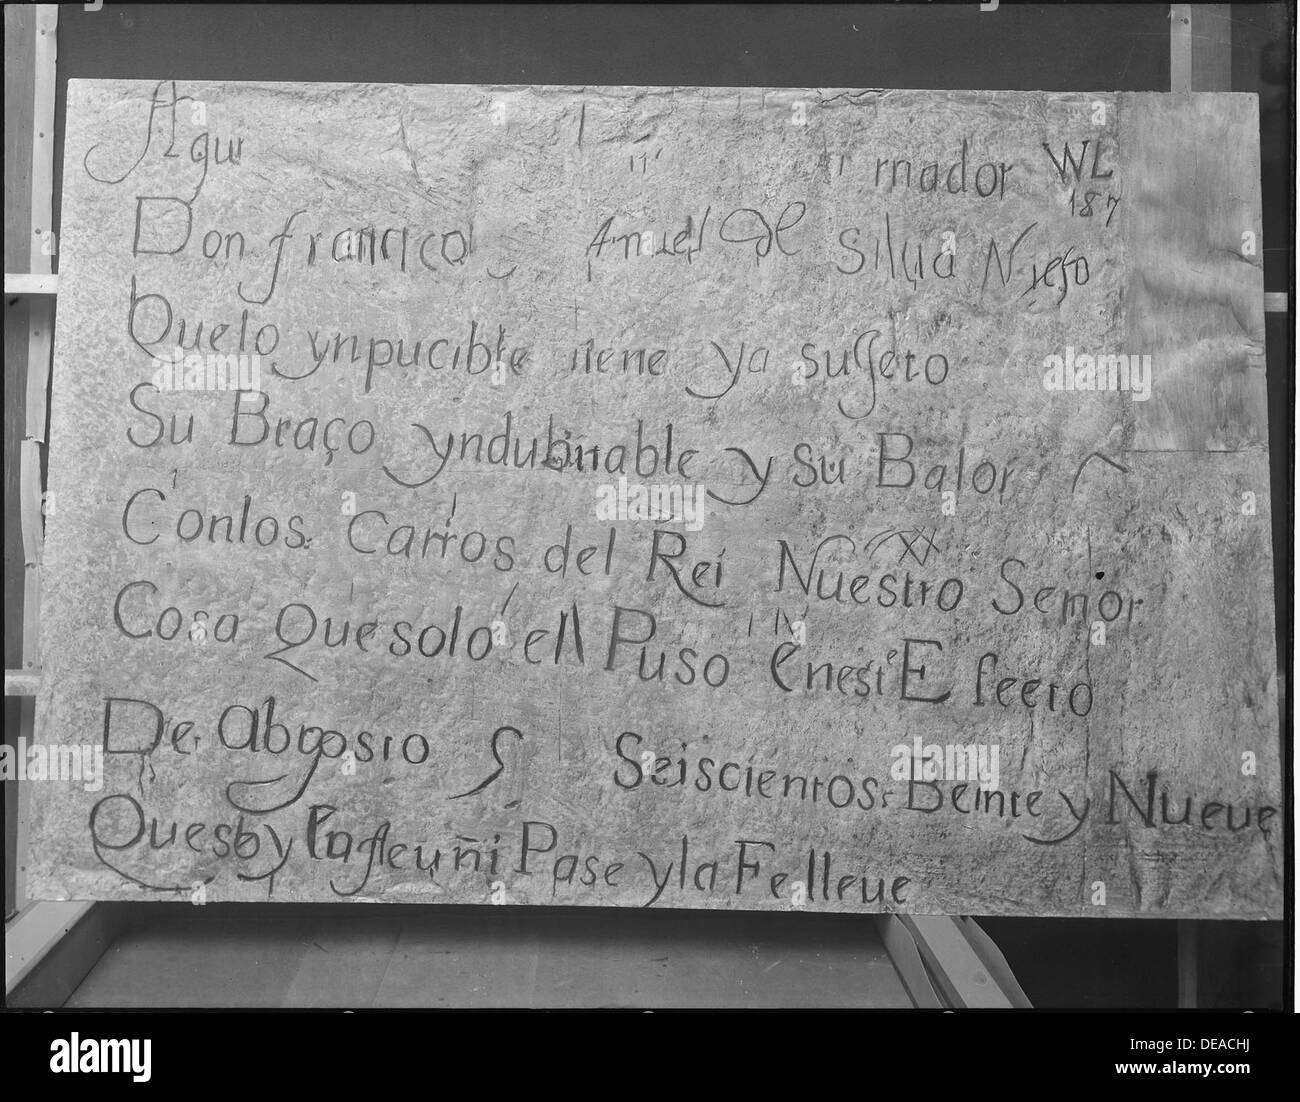 Aqui rnador WL
187
Don francisco Manuel De Silua Nieto
Quelo ynpucible tiene ya sujeto
Su Braço yndubitable y su Balor
Conlos Carros del Rei Nuestro Senor
Cosa Que solo el Puso en este Efecto
De Abgosto Seiscientos Beinte y Nueue
Quesby Pase y la Fe lleue
alamy
DEACHJ
www.alamy.com